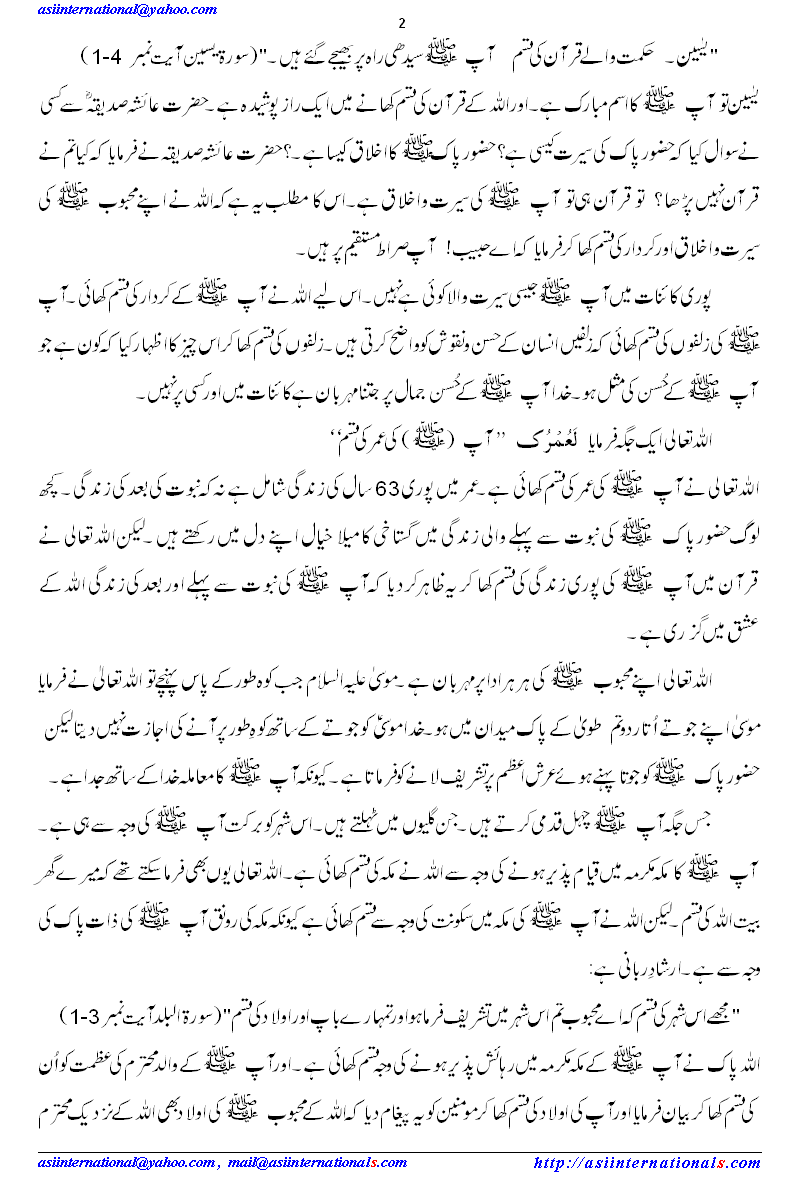 asiinternational@yahoo.com
2
"یٰسین۔ حکمت والے قرآن کی قسم آپ ﷺ سیدھی راہ پر بھیجے گئے ہیں۔"(سورۃ یٰسین آیت نمبر 4-1)
یٰسین تو آپ ﷺ کا اسم مبارک ہے۔اور اللہ کے قرآن کی قسم کھانے میں ایک راز پوشیدہ ہے۔حضرت عائشہ صدیقہؓ سے کسی
نے سوال کیا کہ حضور پاک کی سیرت کیسی ہے؟ حضور پاک ﷺ کا اخلاق کیسا ہے۔؟حضرت عائشہ صدیقہ نے فرمایا کہ کیا تم نے
قرآن نہیں پڑھا؟ تو قرآن ہی تو آپ ﷺ کی سیرت و اخلاق ہے۔اس کا مطلب یہ ہے کہ اللہ نے اپنے محبوب ﷺ کی
سیرت و اخلاق اور کردار کی قسم کھا کر فرمایا کہ اے حبیب! آپ صراط مستقیم پر ہیں۔
پوری کائنات میں آپ ﷺ جیسی سیرت والا کوئی ہے نہیں۔اس لیے اللہ نے آپ ﷺ کے کردار کی قسم کھائی۔آپ
ﷺ کی زلفوں کی قسم کھائی کہ زلفیں انسان کے حسن و نقوش کو واضح کرتی ہیں۔زلفوں کی قسم کھا کر اس چیز کا اظہار کیا کہ کون ہے جو
آپ ﷺ کے حُسن کی مثل ہو۔خدا آپ ﷺ کے حُسن جمال پر جتنا مہربان ہے کائنات میں اور کسی پر نہیں۔
اللہ تعالی ایک جگہ فرمایا لَعَمْرُک ’’آپ (ﷺ) کی عمر کی قسم‘‘
اللہ تعالی نے آپ ﷺ کی عمر کی قسم کھائی ہے۔عمر میں پوری 63 سال کی زندگی شامل ہے نہ کہ نبوت کی بعد کی زندگی۔کچھ
لوگ حضور پاک ﷺ کی نبوت سے پہلے والی زندگی میں گستاخی کا میلا خیال اپنے دل میں رکھتے ہیں۔لیکن اللہ تعالی نے
قرآن میں آپ ﷺ کی پوری زندگی کی قسم کھا کر یہ ظاہر کر دیا کہ آپ ﷺ کی نبوت سے پہلے اور بعد کی زندگی اللہ کے
عشق میں گزری ہے۔
اللہ تعالی اپنے محبوب ﷺ کی ہر ہر ادا پر مہربان ہے۔موسیٰ علیہ السلام جب کوہ طور کے پاس پہنچے تو اللہ تعالیٰ نے فرمایا
موسیٰ اپنے جوتے اُتار دو تم طویٰ کے پاک میدان میں ہو۔خدا موسیٰؑ کو جوتے کے ساتھ کوہِ طور پر آنے کی اجازت نہیں دیتا لیکن
حضور پاک ﷺ کو جوتا پہنے ہوئے عرشِ اعظم پر تشریف لانے کو فرماتا ہے۔کیونکہ آپ ﷺ کا معاملہ خدا کے ساتھ جدا ہے۔
جس جگہ آپ ﷺ چہل قدمی کرتے ہیں۔جن گلیوں میں ٹہلتے ہیں۔اس شہر کو برکت آپ ﷺ کی وجہ سے ہی ہے۔
آپ ﷺ کا مکہ مکرمہ میں قیام پذیر ہونے کی وجہ سے اللہ نے مکہ کی قسم کھائی ہے۔اللہ تعالی یوں بھی فرما سکتے تھے کہ میرے گھر
بیت اللہ کی قسم۔لیکن اللہ نے آپ ﷺ کی مکہ میں سکونت کی وجہ سے قسم کھائی ہے کیونکہ مکہ کی رونق آپ ﷺ کی ذات پاک کی
وجہ سے ہے۔ارشادِ ربانی ہے:
"مجھے اس شہر کی قسم کہ اے محبوب تم اس شہر میں تشریف فرما ہو اور تمہارے باپ اور اولاد کی قسم"(سورۃ البلد آیت نمبر 3-1)
اللہ پاک نے آپ ﷺ کے مکہ مکرمہ میں رہائش پذیر ہونے کی وجہ قسم کھائی ہے۔اور آپ ﷺ کے والد محترم کی عظمت کو اُن
کی قسم کھا کر بیان فرمایا اور آپ کی اولاد کی قسم کھا کر مومنین کو یہ پیغام دیا کہ اللہ کے محبوب ﷺ کی اولاد بھی اللہ کے نزدیک محترم
asiinternational@yahoo.com, mail@asiinternationals.com http://asiinternationals.com